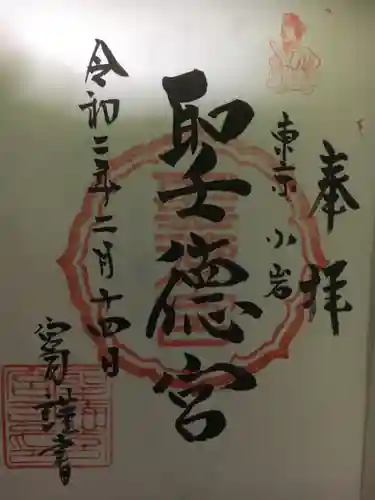 奉拝
東京 小岩
聖徳宮
令和二年二月十四日
謹書